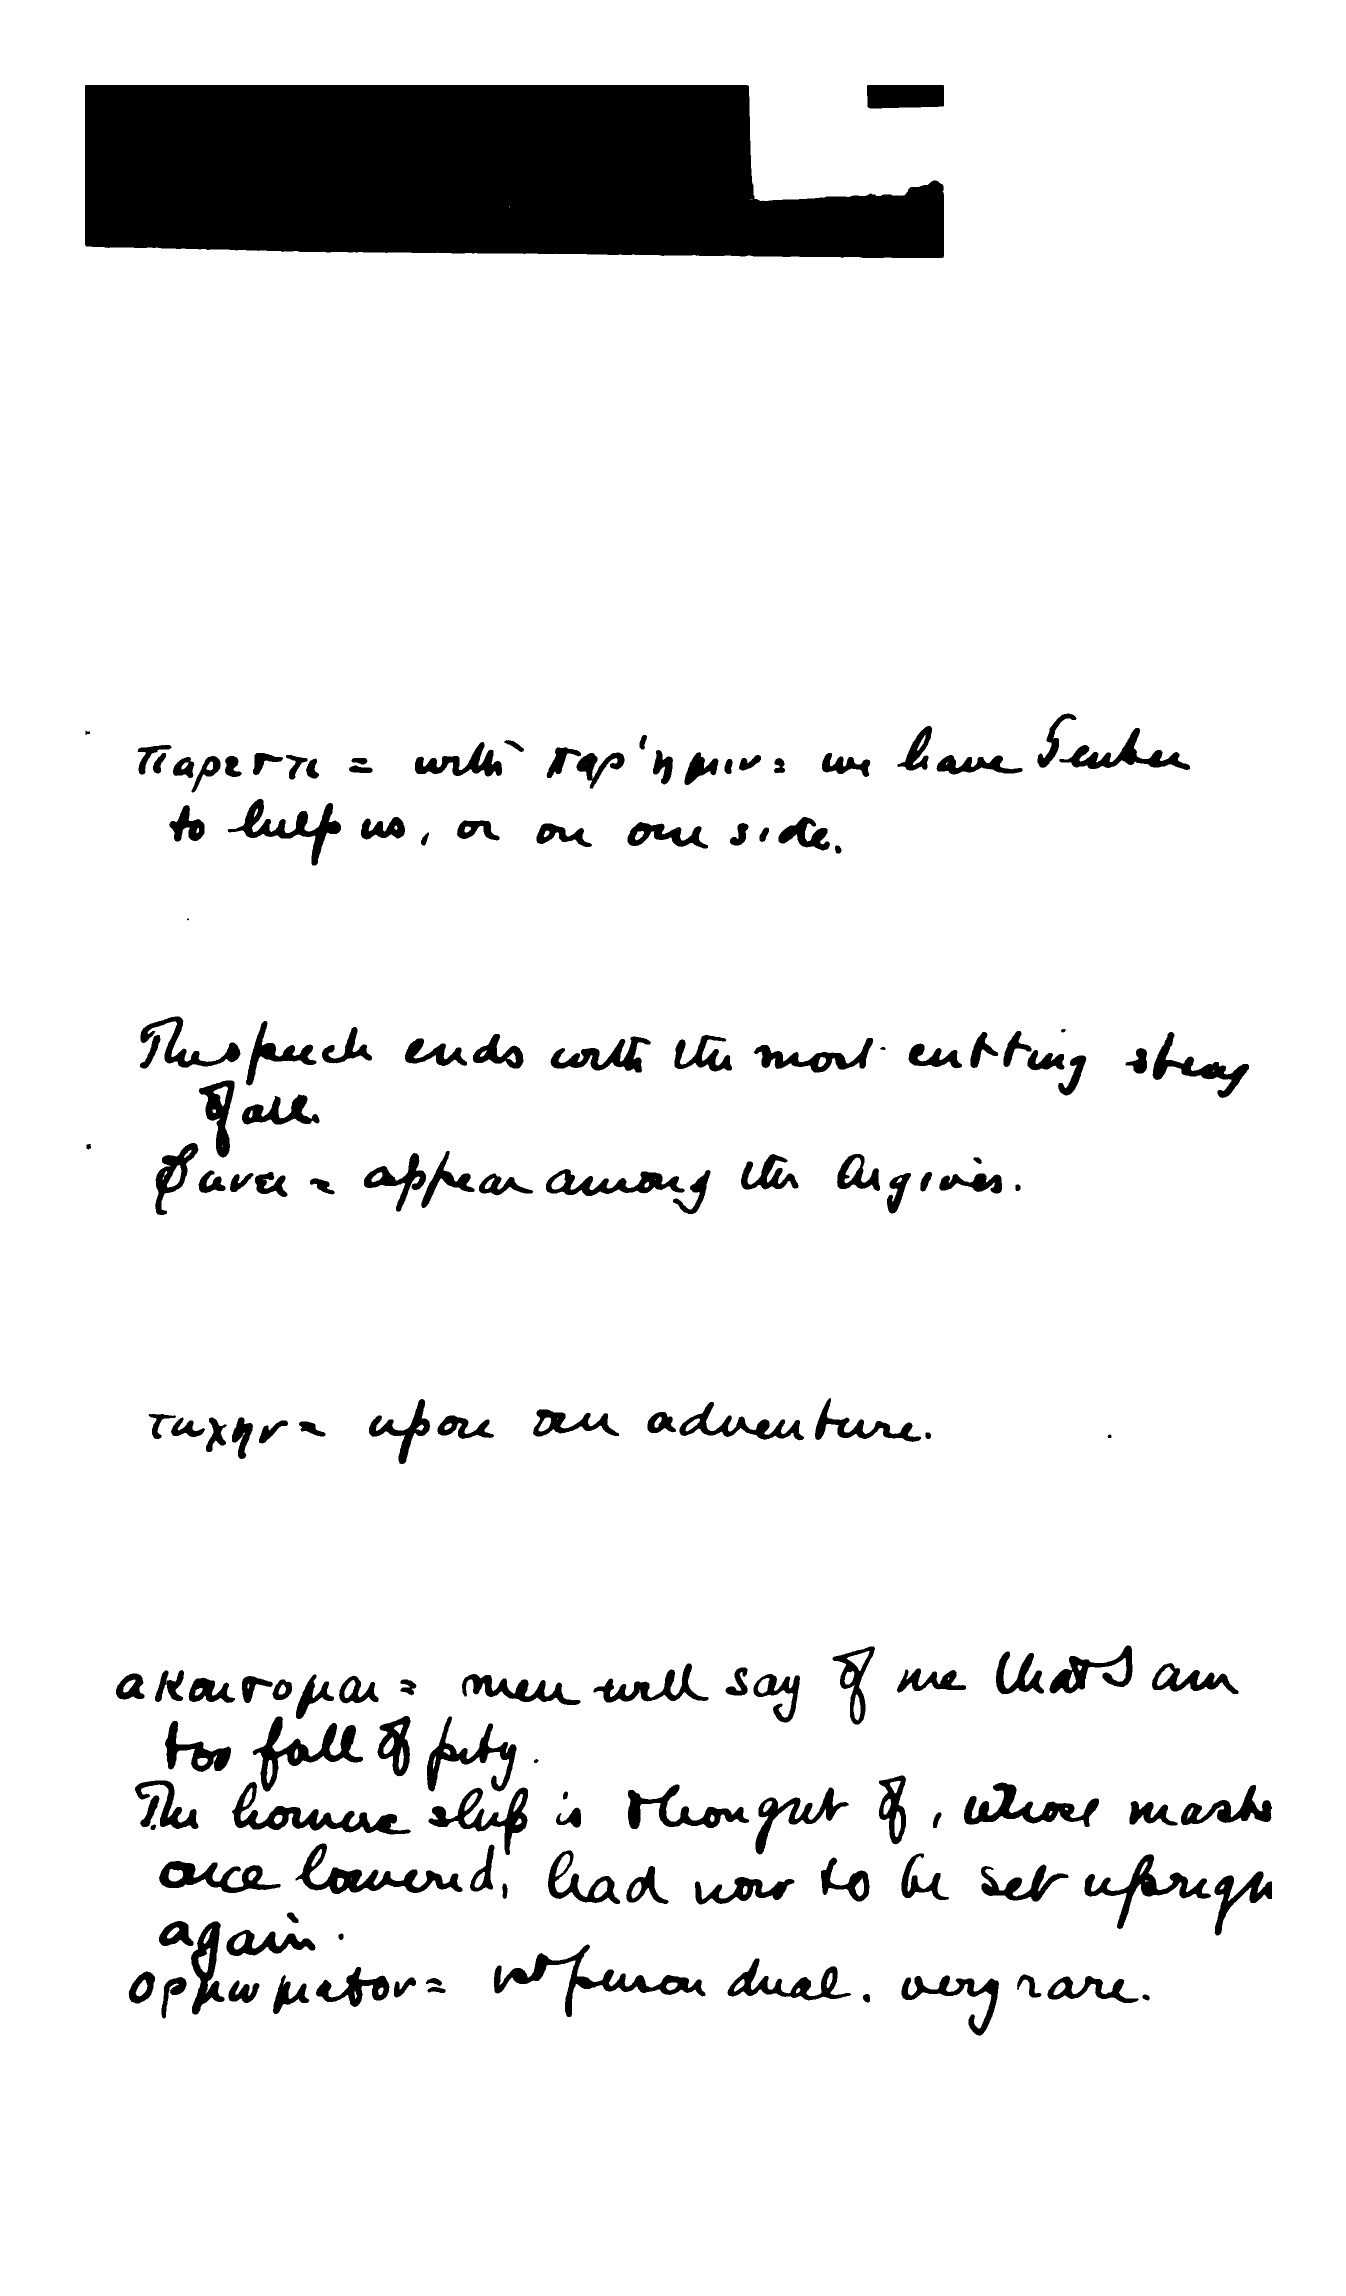 παρεστι = with παρ' ημιν = we have Teuker
to help us, or on our side.
The speech ends with the most cutting
of all.
φανει = appear among the Argives.
τυχην = upon an adventure.
ακουσομαι = men will say of me that I am
too full of pity.
The homeric ship is thought of, whose masts
once lowered, had now to be set uprigh
again.
ορμωμεθον = 1st person dual. very rare.